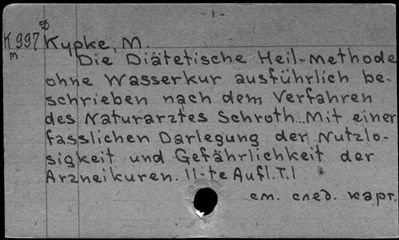 -1-
K 997 Kypke, M.
m
Die Diätetische Heil-Methode
ohne Wasserkur ausführlich be-
schrieben nach dem Verfahren
des Naturarztes Schroth. Mit einer
fasslichen Darlegung der Nutzlo-
sigkeit und Gefährlichkeit der
Arzneikuren. 11-te Aufl. T. 1
см. след. карт.